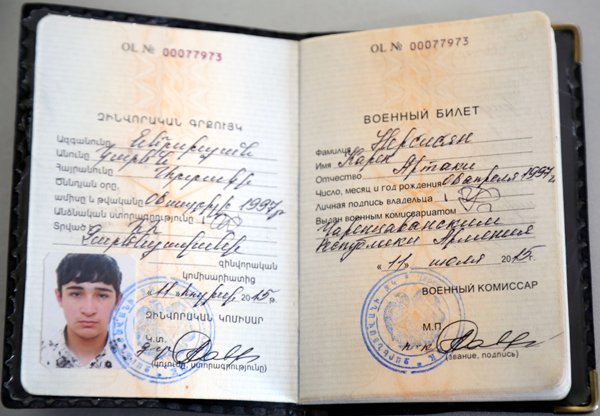 OL № 00077973
ԶԻՆՎՈՐԱԿԱՆ ԳՐՔՈՒՅԿ
Ազգանունը
Անունը Կարեն
Հայրանունը
Ծննդյան օրը,
ամիսը և թվականը 06 ապրիլի 1997թ
Անձնական ստորագրությունը
Տրված է
զինվորական
կոմիսարիատից
«11» հուլիսի 2015թ.
ԶԻՆՎՈՐԱԿԱՆ ԿՈՄԻՍԱՐ
Կ.Տ.
(կոչումը, ստորագրությունը)
OL № 00077973
ВОЕННЫЙ БИЛЕТ
Фамилия
Имя Карен
Отчество Артаки
Число, месяц и год рождения 06 апреля 1997г
Личная подпись владельца
Выдан военным комиссариатом
Чаренцаванским
Республики Армения
«11» июля 2015г.
ВОЕННЫЙ КОМИССАР
М.П.
п-к
(звание, подпись)